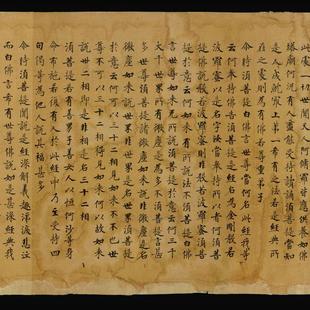 此處一切世間天人阿修羅皆應供養如佛
塔廟何況有人盡能受持讀誦須菩提當知
是人成就最上第一希有之法若是經典所
在之處則為有佛若尊重弟子
尒時須菩提白佛言世尊當何名此經我等
云何奉持佛告須菩提是經名為金剛般若
波羅蜜以是名字汝當奉持所以者何須菩
提佛說般若波羅蜜則非般若波羅蜜須菩
提於意云何如來有所說法不須菩提白佛
言世尊如來无所說須菩提於意云何三千
大千世界所有微塵是為多不須菩提言甚
多世尊須菩提諸微塵如來說非微塵是名
微塵如來說世界非世界是名世界須菩提
於意云何可以三十二相見如來不不也世
尊不可以三十二相得見如來何以故如來
說卅二相即是非相是名三十二相
須菩提若有善男子善女人以恒河沙等身
命布施若復有人於此經中乃至受持四
句偈等為他人說其福甚多
尒時須菩提聞說是經深解義趣涕淚悲泣
而白佛言希有世尊佛說如是甚深經典我